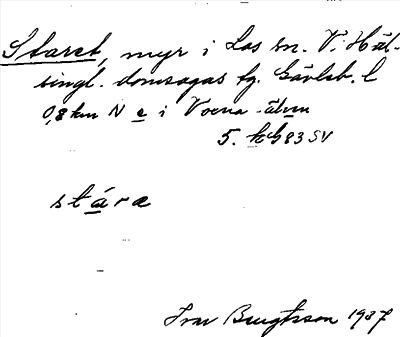 Staret, myr i Los sn. V. Häl-
singl. domsagas tg. Gävleb. l
0,8 km N e i Voxna-älven
5. kb 83 SV
stára
Ivar Bengtsson 1937